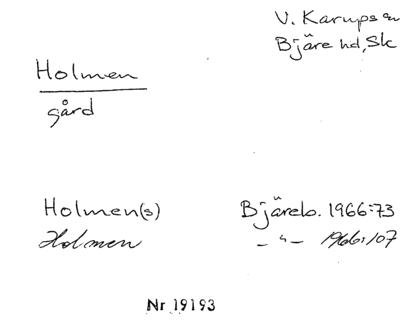 V. Karups sn
Bjäre hd, Sk
Holmen
gård
Holmen(s) Bjäreb. 1966:73
Holmen – " – 1966:107
Nr 19193